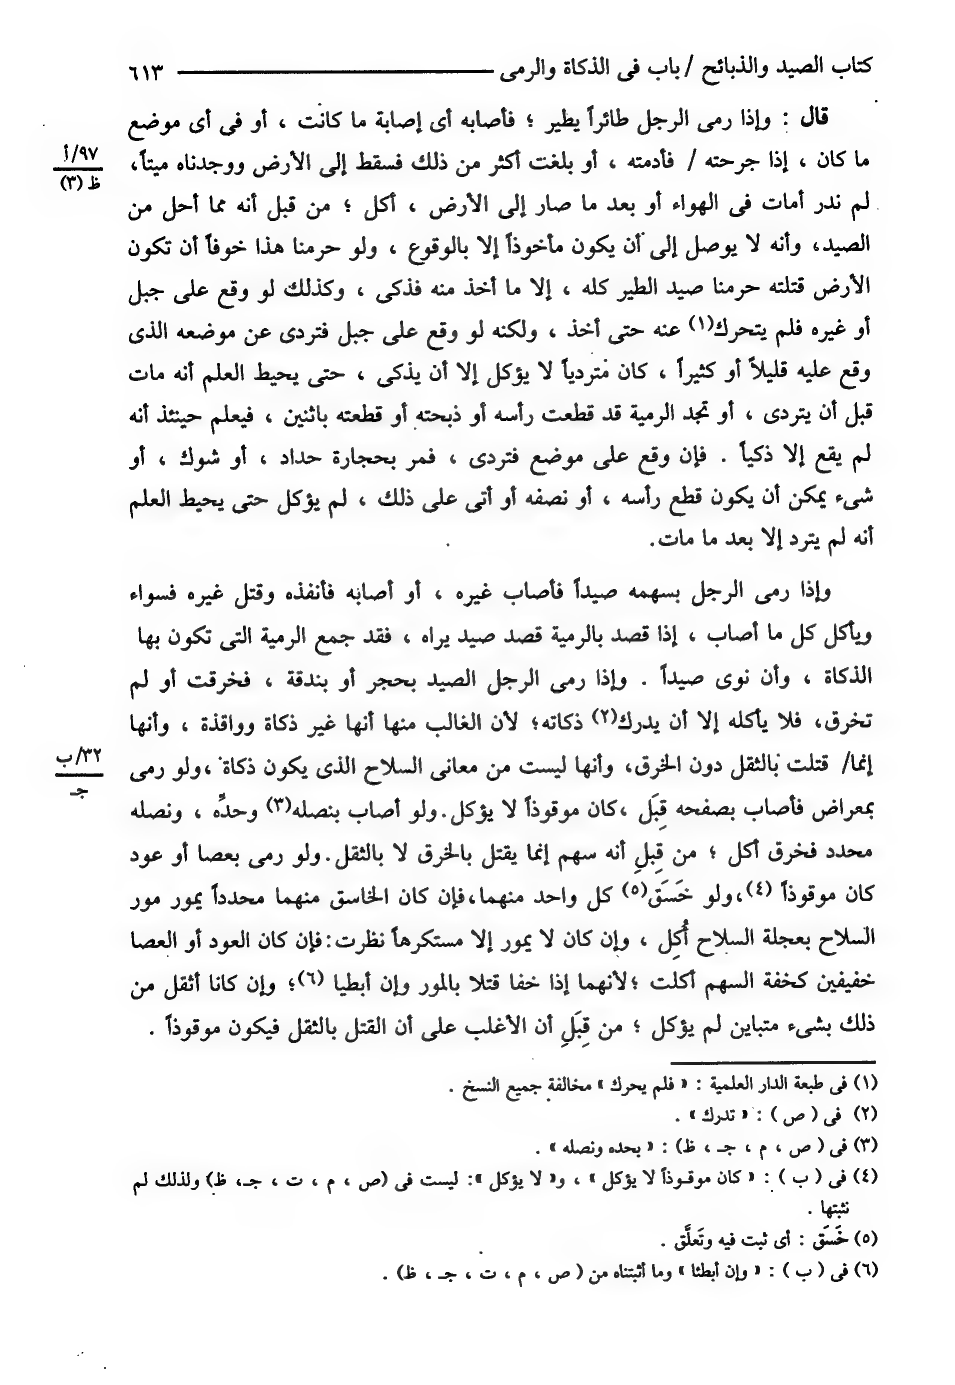 كتاب الصيد والذبائح / باب فى الذكاة والرمى ــــــــــــ ٦١٣
قال : وإذا رمى الرجل طائراً يطير ؛ فأصابه أى إصابة ما كانت ، أو فى أى موضع
ما كان ، إذا جرحته / فأدمته ، أو بلغت أكثر من ذلك فسقط إلى الأرض ووجدناه ميتاً،
٩٧/أ
ظ (٣)
لم ندر أمات فى الهواء أو بعد ما صار إلى الأرض ، أكل ؛ من قبل أنه مما أحل من
الصيد، وأنه لا يوصل إلى أن يكون مأخوذاً إلا بالوقوع ، ولو حرمنا هذا خوفاً أن تكون
الأرض قتلته حرمنا صيد الطير كله ، إلا ما أخذ منه فذكى ، وكذلك لو وقع على جبل
أو غيره فلم يتحرك(١) عنه حتى أخذ ، ولكنه لو وقع على جبل فتردى عن موضعه الذى
وقع عليه قليلاً أو كثيراً ، كان متردياً لا يؤكل إلا أن يذكى ، حتى يحيط العلم أنه مات
قبل أن يتردى ، أو تجد الرمية قد قطعت رأسه أو ذبحته أو قطعته باثنين ، فيعلم حينئذ أنه
لم يقع إلا ذكياً . فإن وقع على موضع فتردى ، فمر بحجارة حداد ، أو شوك ، أو
شىء يمكن أن يكون قطع رأسه ، أو نصفه أو أتى على ذلك ، لم يؤكل حتى يحيط العلم
أنه لم يترد إلا بعد ما مات.
وإذا رمى الرجل بسهمه صيداً فأصاب غيره ، أو أصابه فأنفذه وقتل غيره فسواء
ويأكل كل ما أصاب ، إذا قصد بالرمية قصد صيد يراه ، فقد جمع الرمية التى تكون بها
الذكاة ، وأن نوى صيداً . وإذا رمى الرجل الصيد بحجر أو بندقة ، فخرقت أو لم
تخرق، فلا يأكله إلا أن يدرك(٢) ذكاته؛ لأن الغالب منها أنها غير ذكاة وواقذة ، وأنها
إنما/ قتلت بالثقل دون الخرق، وأنها ليست من معانى السلاح الذى يكون ذكاة ،ولو رمى
٣٢/ب
جـ
بمعراض فأصاب بصفحه قِبَل ،كان موقوذاً لا يؤكل.ولو أصاب بنصله(٣) وحدِّه ، ونصله
محدد فخرق أكل ؛ من قِبلِ أنه سهم إنما يقتل بالخرق لا بالثقل.ولو رمى بعصا أو عود
كان موقوذاً (٤)،ولو خَسَق(٥) كل واحد منهما،فإن كان الخاسق منهما محدداً يمور مور
السلاح بعجلة السلاح أُكِل ، وإن كان لا يمور إلا مستكرهاً نظرت:فإن كان العود أو العصا
خفيفين كخفة السهم أكلت ؛لأنهما إذا خفا قتلا بالمور وإن أبطيا (٦)؛ وإن كانا أثقل من
ذلك بشىء متباين لم يؤكل ؛ من قِبَلِ أن الأغلب على أن القتل بالثقل فيكون موقوذاً .
(١) فى طبعة الدار العلمية : « فلم يحرك » مخالفة جميع النسخ .
(٢) فى ( ص ) : « تدرك » .
(٣) فى ( ص ، م ، جـ ، ظ) : « بحده ونصله » .
(٤) فى ( ب ) : « كان موقوذاً لا يؤكل » ، و« لا يؤكل »: ليست فى (ص ، م ، ت ، جـ، ظ) ولذلك لم
نثبتها .
(٥) خَسَق : أى ثبت فيه وتَعلَّق .
(٦) فى ( ب ) : « وإن أبطئا » وما أثبتناه من ( ص ، م ، ت ، جـ ، ظ) .